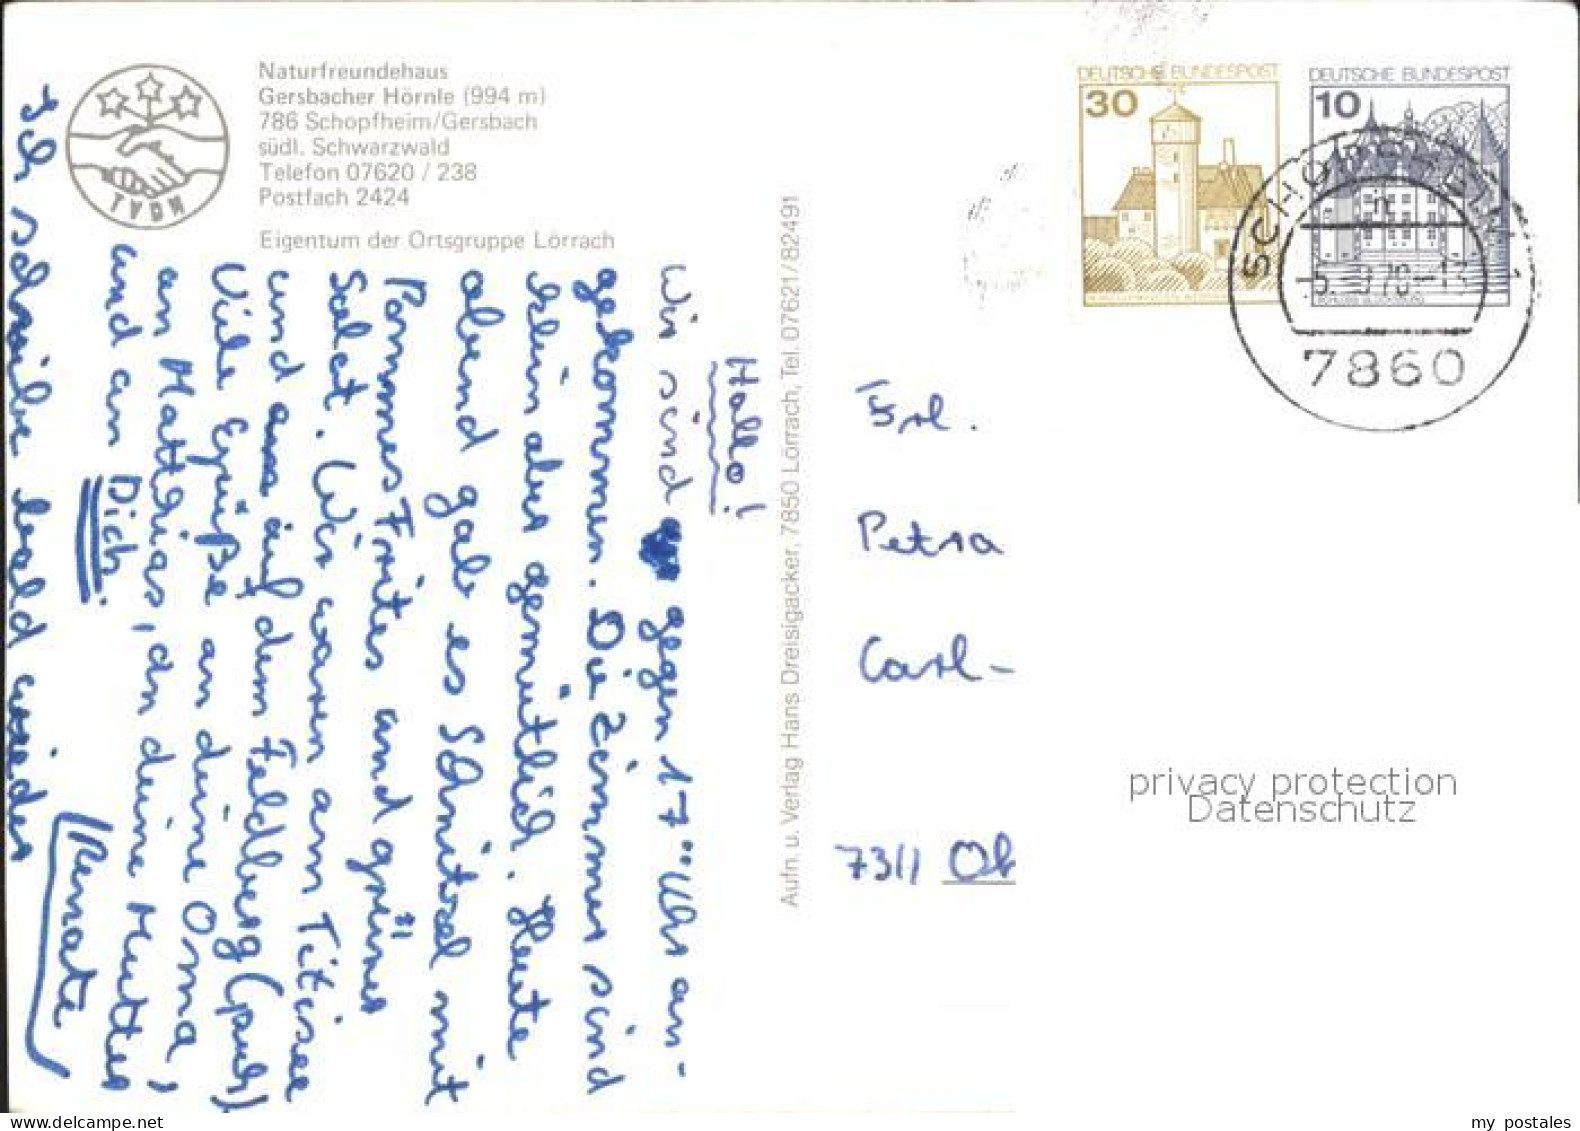 Naturfreundehaus
Gersbacher Hörnle (994 m)
786 Schopfheim/Gersbach
südl. Schwarzwald
Telefon 07620 / 238
Postfach 2424
Eigentum der Ortsgruppe Lörrach
TVDN
Hallo!
Wir sind gegen 17°° Uhr an-
gekommen. Die Zimmer sind
klein aber gemütlich. Heute
abend gab es Schnitzel mit
Pommes Frites und grüner
Salat. Wir waren am Titisee
und auf dem Feldberg (puh!)
Viele Grüße an deine Oma,
an Matthias, an deine Mutter
und an Dich.
Renate
Ich schreibe bald wieder
Aufn. u. Verlag Hans Dreisigacker, 7850 Lörrach, Tel. 07621/82491
DEUTSCHE BUNDESPOST
30
DEUTSCHE BUNDESPOST
10
SCHOPFHEIM 1
7860
Frl.
Petra
Carl-
7311 
privacy protection
Datenschutz
my postales